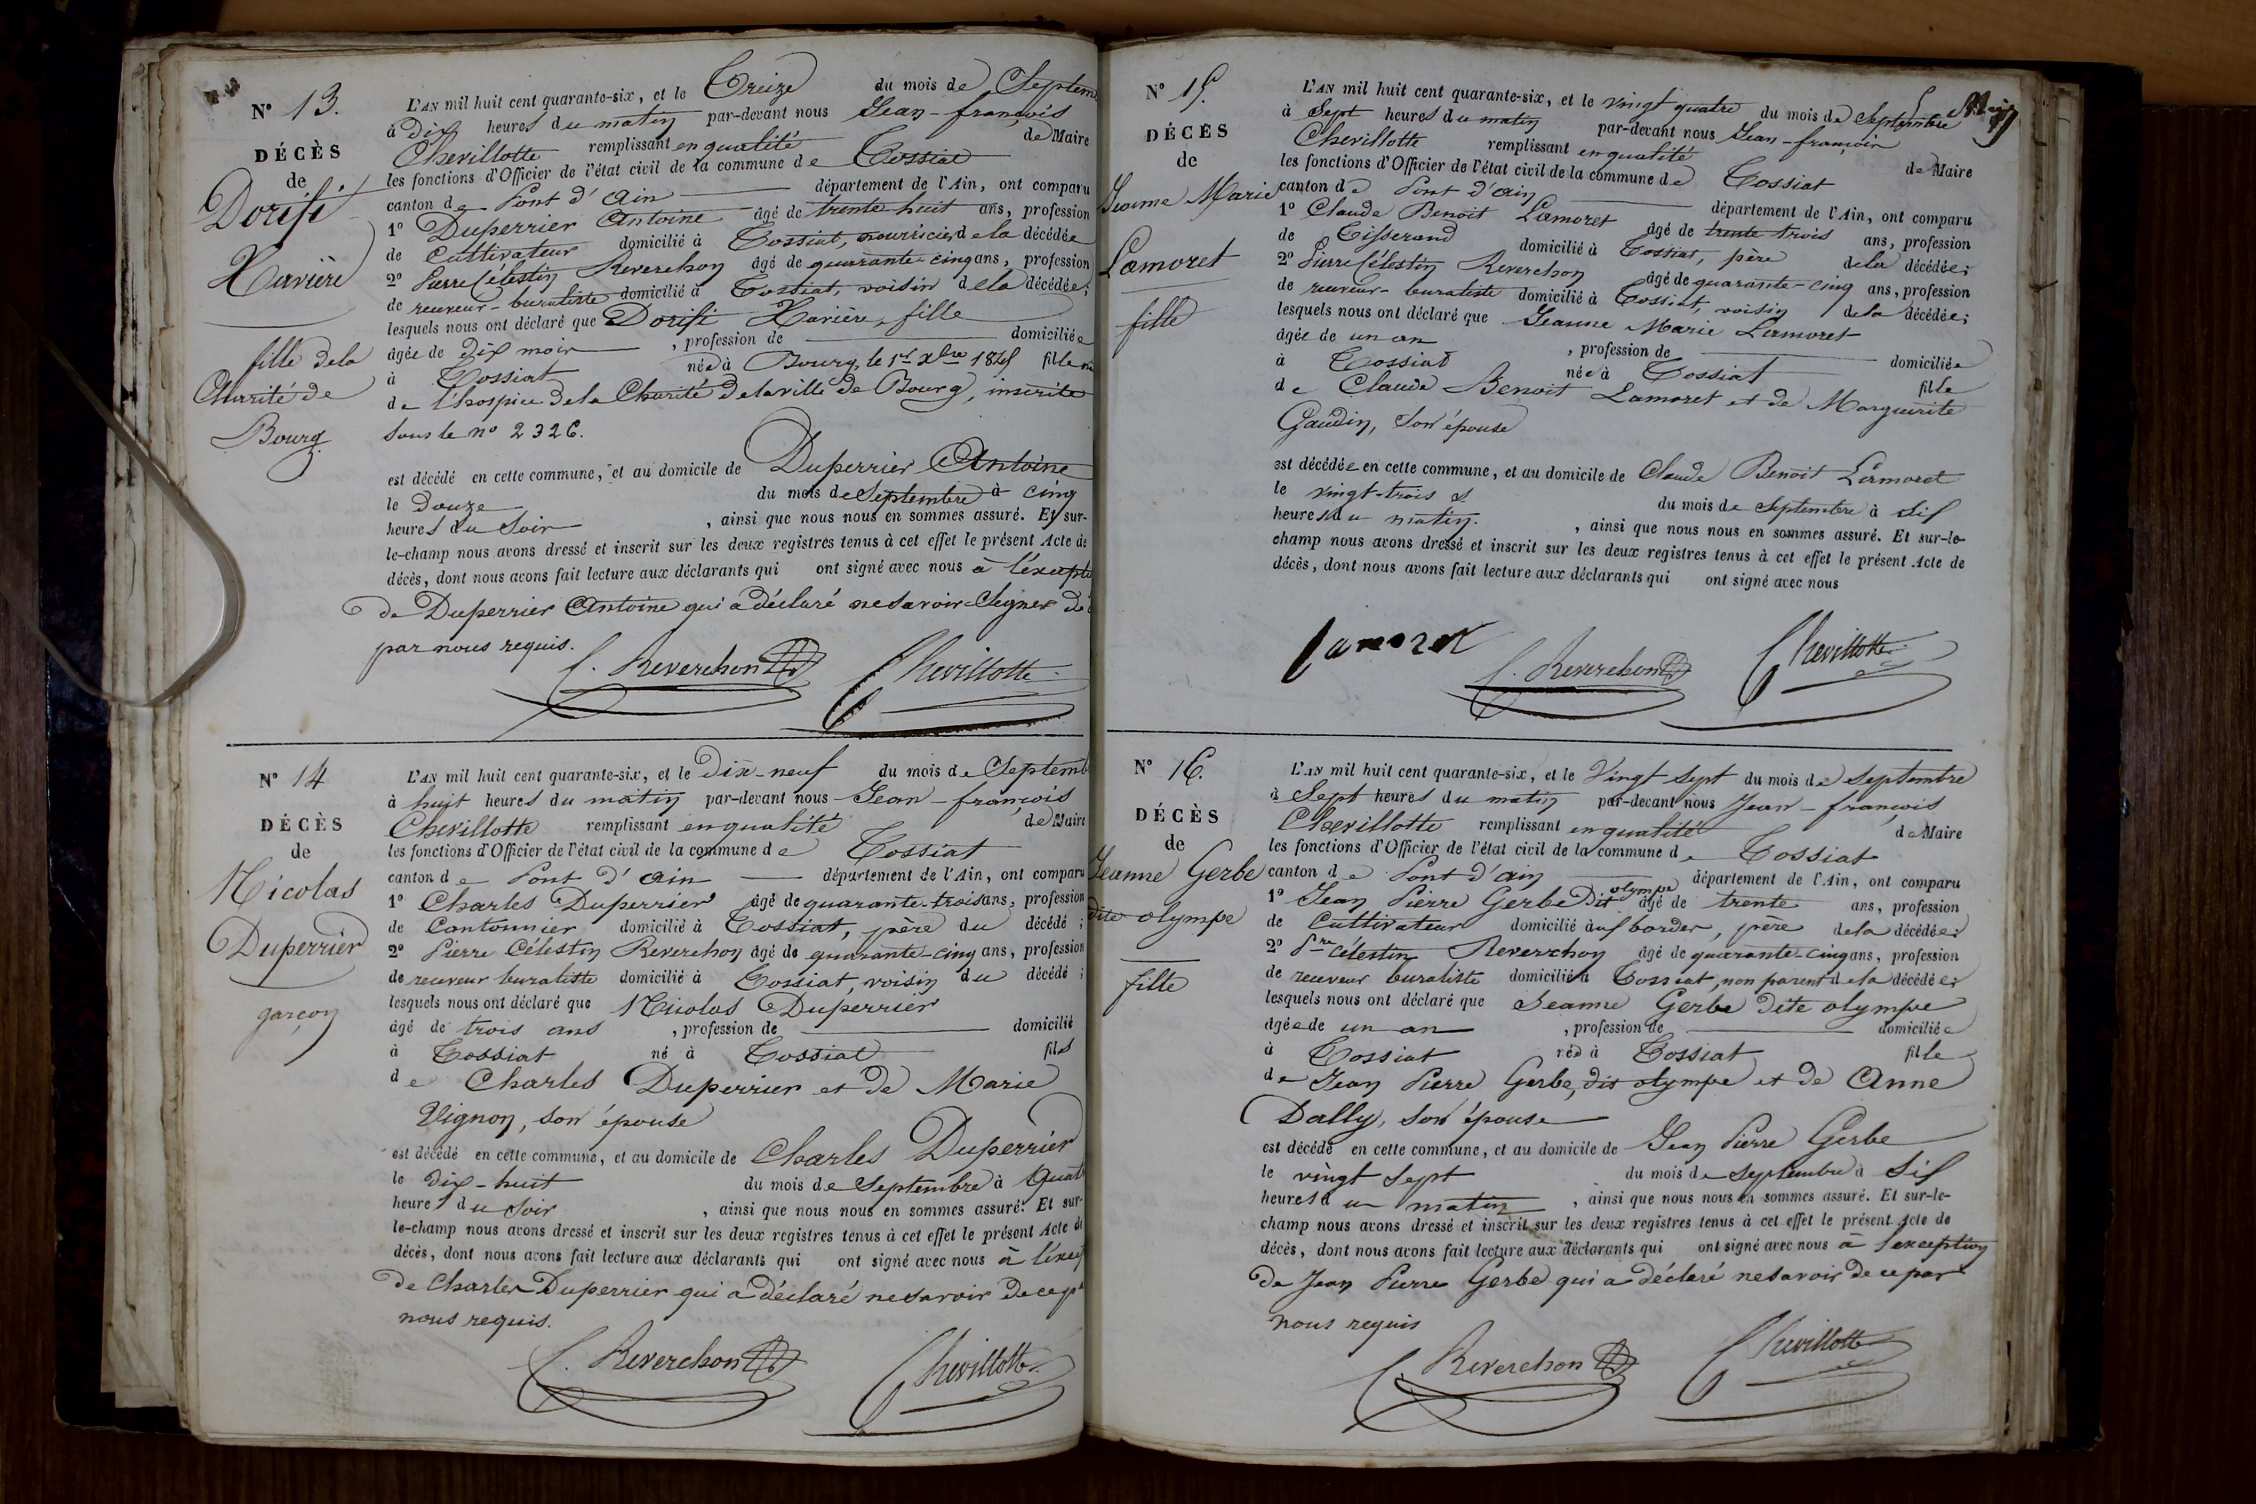 N° 13.
DÉCÈS
de
Dorisi
Xavière
fille de la
Charité de
Bourg.
L'AN mil huit cent quarante-six, et le Treize du mois de Septem
à dix heures du matin par-devant nous Jean-françois
Chevillotte remplissant en qualité de Maire
les fonctions d'Officier de l'état civil de la commune de Tossiat
canton de Pont d'ain département de l'Ain, ont comparu
1° Duperrier Antoine âgé de trente huit ans, profession
de Cultivateur domicilié à Tossiat, nourricier de la décédée
2° Pierre Célestin Reverchon âgé de quarante-cinq ans, profession
de receveur-buraliste domicilié à Tossiat, voisin de la décédée;
lesquels nous ont déclaré que Dorisi Xavière, fille
âgée de dix mois, profession de domiciliée
à Tossiat née à Bourg, le 1er xbre 1845 fille
de l'hospice de la Charité de la ville de Bourg, inscrite
sous le n° 2326.
est décédé en cette commune, et au domicile de Duperrier Antoine
le Douze du mois de Septembre à cinq
heures du Soir, ainsi que nous nous en sommes assuré. Et sur-
le-champ nous avons dressé et inscrit sur les deux registres tenus à cet effet le présent Acte de
décès, dont nous avons fait lecture aux déclarants qui ont signé avec nous à l'excepti
de Duperrier Antoine qui a déclaré ne savoir Signer de
par nous requis.
C. Reverchon Chevillotte
N° 14
DÉCÈS
de
Nicolas
Duperrier
garçon
L'AN mil huit cent quarante-six, et le Dix-neuf du mois de Septemb
à huit heures du matin par-devant nous Jean-françois
Chevillotte remplissant en qualité de Maire
les fonctions d'Officier de l'état civil de la commune de Tossiat
canton de Pont d'ain département de l'Ain, ont comparu
1° Charles Duperrier âgé de quarante-trois ans, profession
de Cantonnier domicilié à Tossiat, père du décédé;
2° Pierre Célestin Reverchon âgé de quarante-cinq ans, profession
de receveur buraliste domicilié à Tossiat, voisin du décédé;
lesquels nous ont déclaré que Nicolas Duperrier
âgé de trois ans, profession de domicilié
à Tossiat né à Tossiat fils
de Charles Duperrier et de Marie
Vignon, son épouse
est décédé en cette commune, et au domicile de Charles Duperrier
le dix-huit du mois de Septembre à Quat
heures du Soir, ainsi que nous nous en sommes assuré. Et sur-
le-champ nous avons dressé et inscrit sur les deux registres tenus à cet effet le présent Acte de
décès, dont nous avons fait lecture aux déclarants qui ont signé avec nous à l'excep
de Charles Duperrier qui a déclaré ne savoir de ce p
nous requis.
C. Reverchon Chevillotte
N° 15.
DÉCÈS
de
Jeanne Marie
Lamoret
fille
L'AN mil huit cent quarante-six, et le vingt quatre du mois de Septembre
à Sept heures du matin par-devant nous Jean-françois
Chevillotte remplissant en qualité de Maire
les fonctions d'Officier de l'état civil de la commune de Tossiat
canton de Pont d'ain département de l'Ain, ont comparu
1° Claude Benoit Lamoret âgé de trente trois ans, profession
de Tisserand domicilié à Tossiat, père de la décédée;
2° Pierre Célestin Reverchon âgé de quarante-cinq ans, profession
de receveur-buraliste domicilié à Tossiat, voisin de la décédée;
lesquels nous ont déclaré que Jeanne Marie Lamoret
âgée de un an, profession de domiciliée
à Tossiat née à Tossiat fille
de Claude Benoit Lamoret et de Marguerite
Gaudin, son épouse
est décédée en cette commune, et au domicile de Claude Benoit Lamoret
le vingt-trois du mois de Septembre à six
heures du matin., ainsi que nous nous en sommes assuré. Et sur-le-
champ nous avons dressé et inscrit sur les deux registres tenus à cet effet le présent Acte de
décès, dont nous avons fait lecture aux déclarants qui ont signé avec nous
Lamoret C. Reverchon Chevillotte
N° 16.
DÉCÈS
de
Jeanne Gerbe
dite olympe
fille
L'AN mil huit cent quarante-six, et le Vingt Sept du mois de Septembre
à Sept heures du matin par-devant nous Jean-françois
Chevillotte remplissant en qualité de Maire
les fonctions d'Officier de l'état civil de la commune de Tossiat
canton de Pont d'ain département de l'Ain, ont comparu
1° Jean Pierre Gerbe Dit olympe âgé de trente ans, profession
de Cultivateur domicilié à border, père de la décédée;
2° Pre célestin Reverchon âgé de quarante-cinq ans, profession
de receveur buraliste domicilié à Tossiat, non parent de la décédée;
lesquels nous ont déclaré que Jeanne Gerbe dite olympe
âgée de un an, profession de domiciliée
à Tossiat née à Tossiat fille
de Jean Pierre Gerbe, dit olympe et de Anne
Dally, son épouse
est décédé en cette commune, et au domicile de Jean Pierre Gerbe
le vingt Sept du mois de Septembre à six
heures du matin, ainsi que nous nous en sommes assuré. Et sur-le-
champ nous avons dressé et inscrit sur les deux registres tenus à cet effet le présent Acte de
décès, dont nous avons fait lecture aux déclarants qui ont signé avec nous à l'exception
de Jean Pierre Gerbe qui a déclaré ne savoir de ce par
nous requis
C. Reverchon Chevillotte